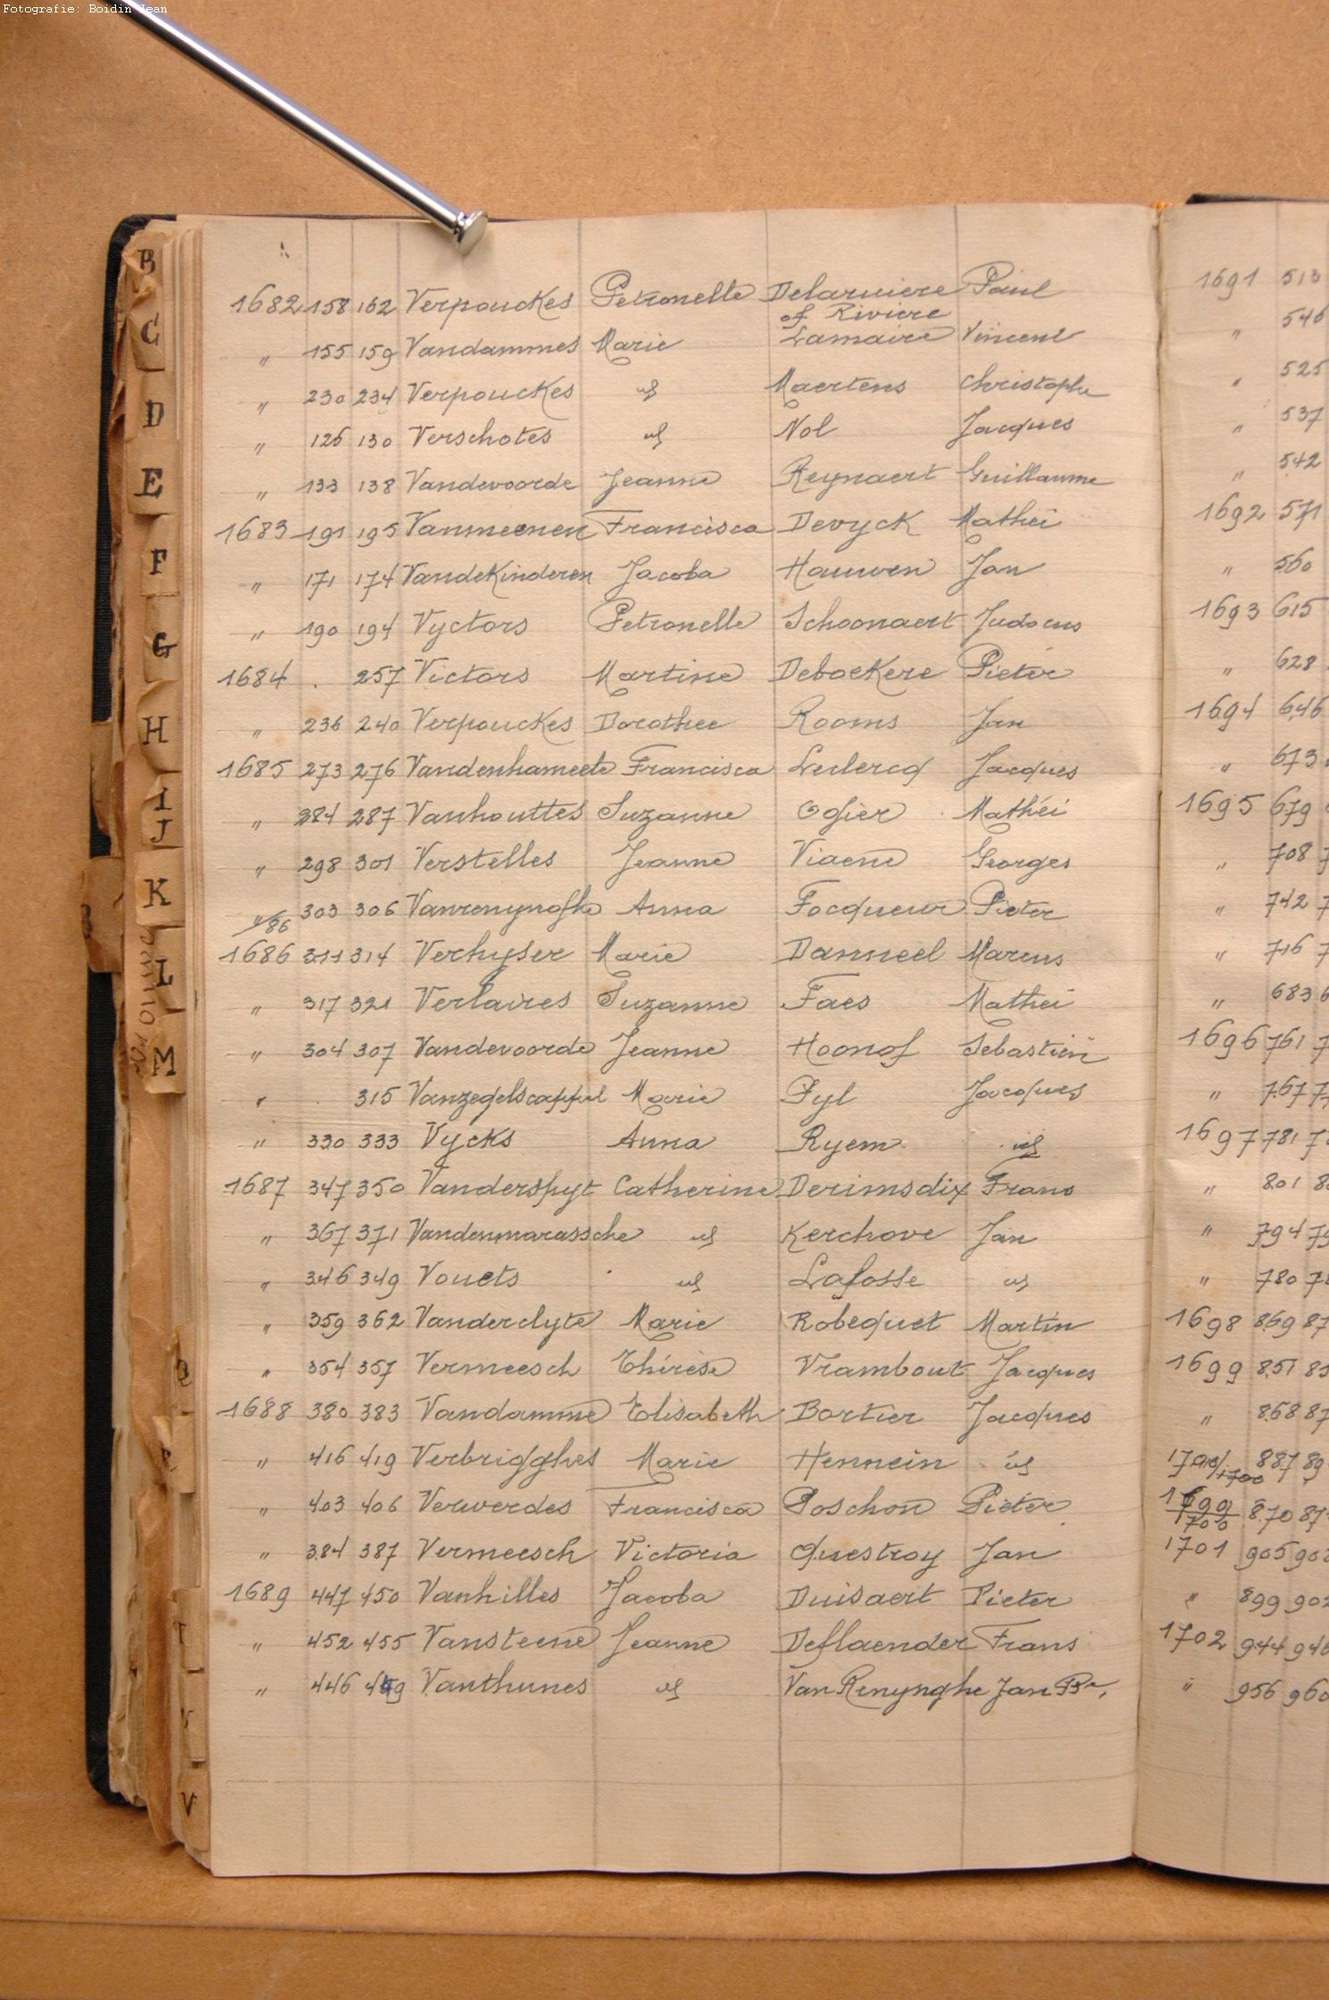 Fotografie: Boidin Jean
1682 158 162 Verpouckes Petronelle Delariviere Paul
of Riviere
" 155 159 Vandammes Marie Lamaire Vincent
" 230 234 Verpouckes id Maertens Christophe
" 126 130 Verschotes id Nol Jacques
" 133 138 Vandevoorde Jeanne Reynaert Guillaume
1683 191 195 Vanmeenen Francisca Devyck Mathei
" 171 174 Vandekinderen Jacoba Hauwen Jan
" 190 194 Vyctors Petronelle Schoonaert Judocus
1684 . 257 Victors Martine Deboekere Pieter
" 236 240 Verpouckes Dorothee Rooms Jan
1685 273 276 Vandenhameete Francisca Leclercq Jacques
" 284 287 Vanhouttes Suzanne Ogier Mathéi
" 298 301 Verstelles Jeanne Viaene Georges
"/86 303 306 Vanrenynghe Anna Focqueur Pieter
1686 311 314 Verhyser Marie Danneel Marcus
" 317 321 Verlaires Suzanne Faes Mathei
" 304 307 Vandevoorde Jeanne Hoonof Sebastien
" 315 Vanzegelscappel Marie Pyl Jacques
" 330 333 Vycks Anna Ryem id
1687 347 350 Vanderspyt Catherine Derimsdix Frans
" 367 371 Vandenmarassche id Kerchove Jan
" 346 349 Vouets id Lafosse id
" 359 362 Vanderclyte Marie Robequet Martin
" 354 357 Vermeesch Thérèse Vrambout Jacques
1688 380 383 Vandamme Elisabeth Bortier Jacques
" 416 419 Verbrigghes Marie Hennein id
" 403 406 Verwerdes Francisca Poschon Pieter
" 384 387 Vermeesch Victoria Questroy Jan
1689 447 450 Vanhilles Jacoba Duisaert Pieter
" 452 455 Vansteene Jeanne Deflaender Frans
" 446 449 Vanthunes id Van Renynghe Jan Bte,
B
C
D
E
F
G
H
I
J
K
L
M
V
1691 513
" 546
" 525
" 537
" 542
1692 571
" 560
1693 615
" 628
1694 646
" 673
1695 679
" 708
" 742
" 716
" 683
1696 761
" 767
1697 781
" 801
" 794
" 780
1698 869 87
1699 851 85
" 868 87
887 89
1699
1700 870 87
1701 905 90
" 899 902
1702 944 946
" 956 960